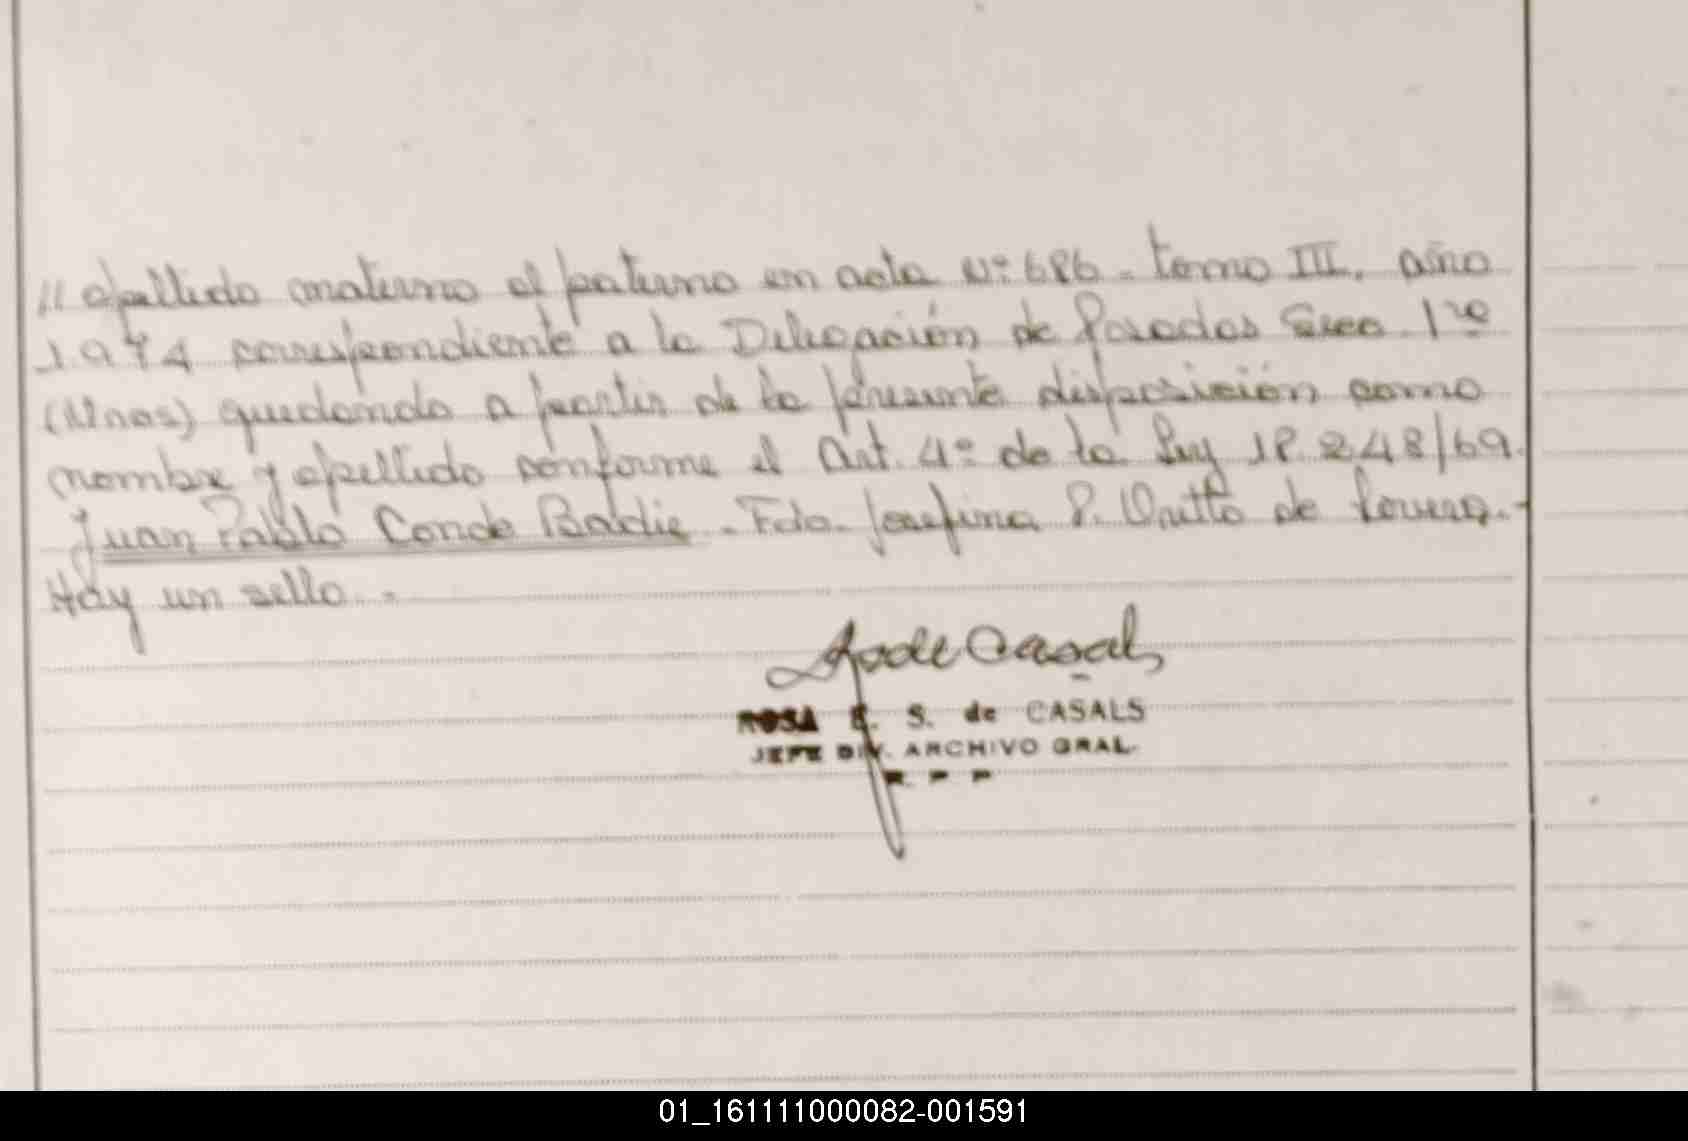 // apellido materno al paterno en acta Nº 686 - tomo III, año
1.974 correspondiente a la Delegación de Posadas Secc. 1ra
(Mnes) quedando a partir de la presente disposición como
nombre y apellido conforme el Art. 4º de la Ley 18.248/69.
Juan Pablo Conde Badie - Fdo. Josefina P. de
Hay un sello.-
ROSA E. S. de CASALS
JEFE DIV. ARCHIVO GRAL.
R. P. P
01_161111000082-001591